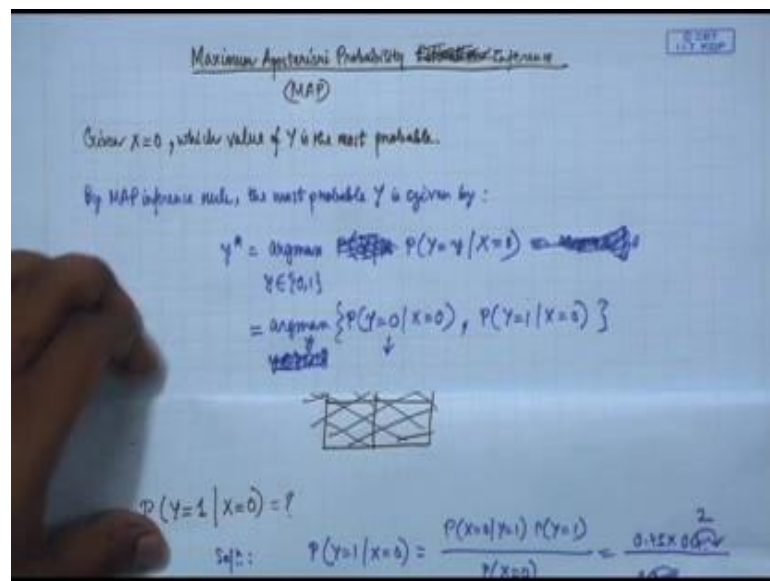 © CET
I.I.T. KGP
Maximum Aposteriori Probability Inference
(MAP)
Given X=0, which value of Y is the most probable.
By MAP inference rule, the most probable Y is given by :
y* = argmax P(Y=y/X=0) =
y∈{0,1}
= argmax {P(Y=0/X=0), P(Y=1/X=0)}
y
↓
P(Y=1|X=0) = ?
Solⁿ: P(Y=1/X=0) = P(X=0/Y=1) P(Y=1) / P(X=0) =
2